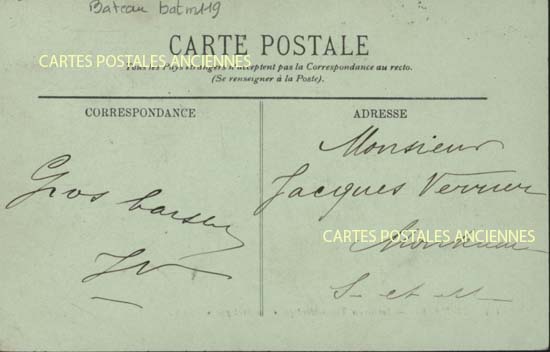 Bateau batm119
CARTE POSTALE
CARTES POSTALES ANCIENNES
Tous les Pays étrangers n'acceptent pas la Correspondance au recto.
(Se renseigner à la Poste).
CORRESPONDANCE
Gros baisers
JV
ADRESSE
Monsieur
Jacques Verrier
CARTES POSTALES ANCIENNES
S-et-M